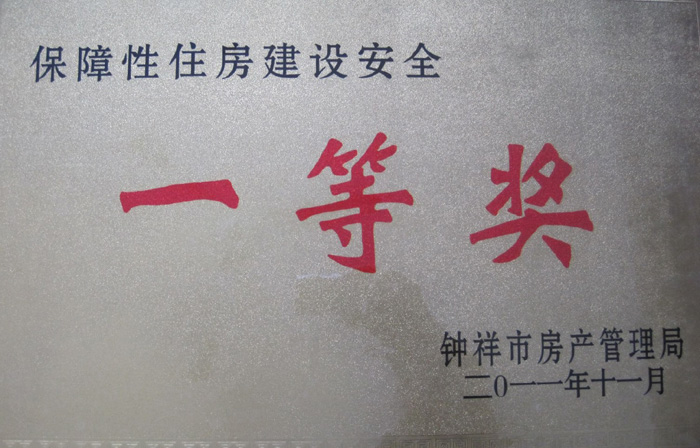 保障性住房建设安全
一等奖
钟祥市房产管理局
二0一一年十一月